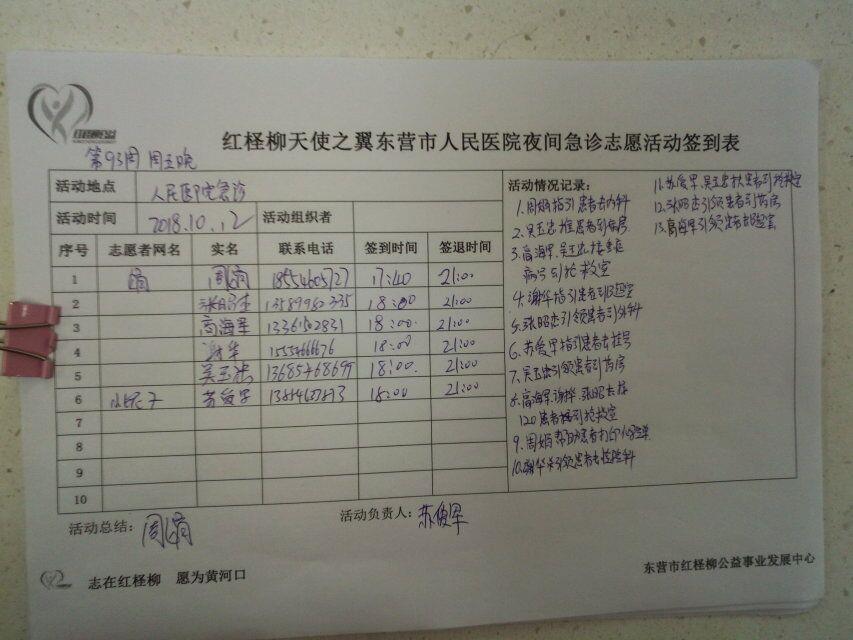 红柽柳天使之翼东营市人民医院夜间急诊志愿活动签到表
第93周 周五晚
活动地点 人民医院急诊
活动时间 2018.10.12 活动组织者
序号 志愿者网名 实名 联系电话 签到时间 签退时间
1 娟 周娟 18554605727 17:40 21:00
2 张昭杰 18:00 21:00
3 高海军 18:00 21:00
4 谢华 18:00 21:00
5 吴玉忠 18:00 21:00
6 苏俊军 18:00 21:00
7
8
9
10
活动情况记录:
1.周娟指引患者去内科
2.吴玉忠推患者到病房
3.高海军.吴玉忠接重症
病号到抢救室
4.谢华指引患者到化验室
5.张昭杰引领患者到外科
6.苏俊军指引患者去挂号
7.吴玉忠引领患者到药房
8.高海军.谢华.张昭杰接
120患者到抢救室
9.周娟帮助患者打印化验单
10.谢华引领患者去检验科
11.苏俊军.吴玉忠扶患者到抢救室
12.张昭杰引领患者到药房
13.高海军引领患者去化验室
活动总结: 周娟
活动负责人: 苏俊军
志在红柽柳 愿为黄河口
东营市红柽柳公益事业发展中心